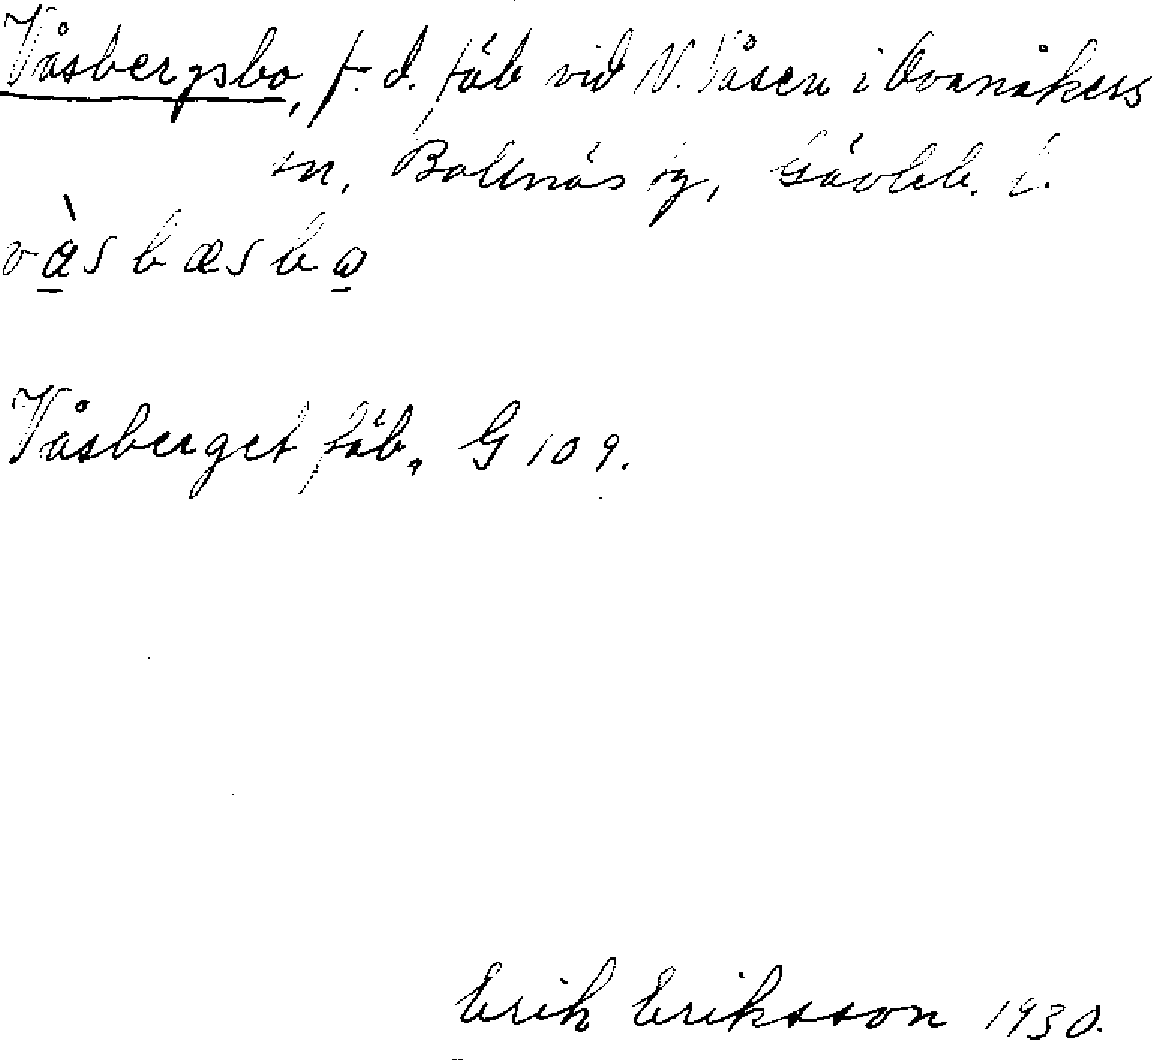 Våsbergsbo, f. d. fäb vid N. Våsen i Ovanåkers
sn, Bollnäs tg, Gävleb. l.
vàsbæsbo
Våsberget fäb, G 109.
Erik Eriksson 1930.